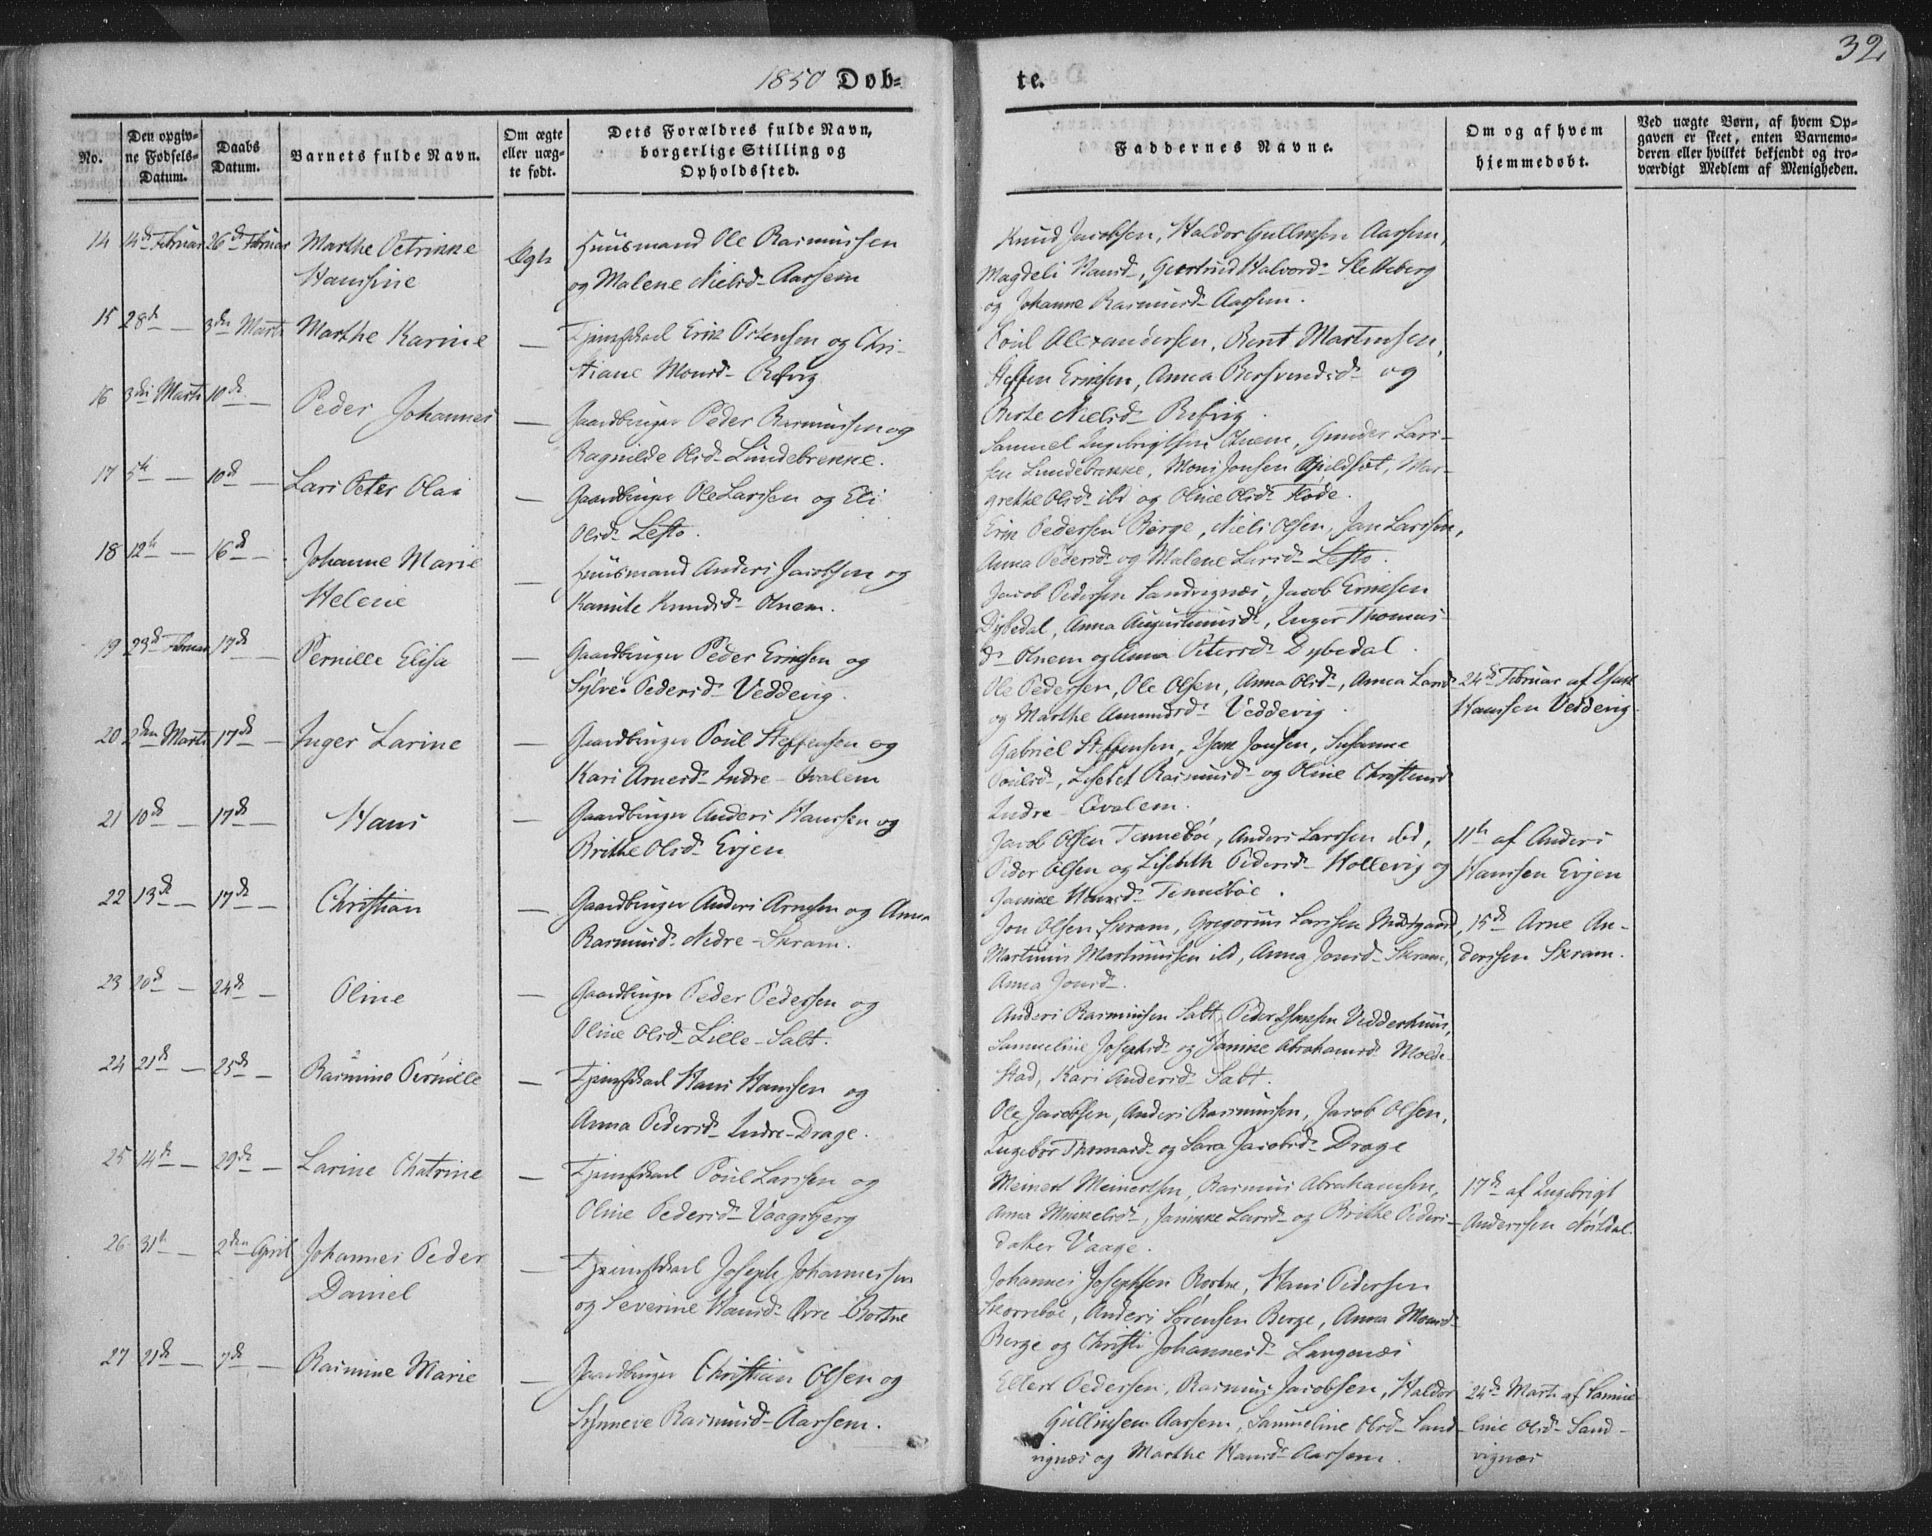 1850 Døb=
te.
32
No.
Den opgiv-
ne Fødsels-
Datum.
Daabs
Datum.
Barnets fulde Navn.
Om ægte
eller uæg-
te født.
Dets Forældres fulde Navn,
borgerlige Stilling og
Opholdssted.
Faddernes Navne.
Om og af hvem
hjemmedøbt.
Ved uægte Børn, af hvem Op-
gaven er skeet, enten Barnemo-
deren eller hvilket bekjendt og tro-
værdigt Medlem af Menigheden.
14 14de Februar 26de Februar Marthe Petrikke
Hanssine
Ægte
Huusmand Ole Rasmussen
og Malene Nielsd- Aarsem
Knud Jacobsen, Haldor Gullmsen Aarsem,
Magdeli Hansd-, Gertrud Halvord- Sletteberg
og Johanne Rasmusd- Aarsem.
15 28de — 3die Marts Marthe Karine —
Tjenistkarl Erik Ostensen og Chri-
stiane Monsd- Refvig
Poul Alexandersen, Bent Martinsen,
Steffen Eriksen, Anna Bersvendsd- og
Berte Nielsd- Refvig.
16 3die Marts 10de — Peder Johannes —
Gaardbruger Peder Rasmussen og
Ragnilde Olsd- Lundebrekke.
Samuel Ingebrigtsen Otnem, Gunder Lars-
sen Lundebrekke, Mons Jonsen Gjeldsæt, Mar-
grethe Olsd- ibd og Oline Olsd- Flöde.
17 5te — 10de — Lars Peter Olai —
Gaardbruger Ole Larssen og Eli
Olsd- Lesto.
Erik Pedersen Berge, Niels Olsen, Jan Larssen,
Anna Pedersd- og Malene Larsd- Lesto.
18 12te — 16de — Johanne Marie
Helene —
Huusmand Anders Jacobsen og
Kamite Knudsd- Otnem.
Jacob Pedersen Sandvignæs, Jacob Eriksen
Dybedal, Anna Augustinusd-, Inger Thomas-
d- Otnem og Anna Petersd- Dybedal.
19 23de Februar 17de — Pernille Elisa —
Gaardbruger Peder Eriksen og
Sylve Pedersd- Veddevig.
Ole Pedersen, Ole Olsen, Anna Olsd-, Anna Larsd-
og Marthe Amundsd- Veddevig.
24de Februar af Isak
Hanssen Veddevig.
20 2den Marts 17de — Inger Larine —
Gaardbruger Poul Steffensen og
Kari Arnesd- Indre-Qvalem
Gabriel Steffensen, Isak Jonsen, Susanne
Poulsd-, Lisebet Rasmusd- og Oline Christensd-
Indre-Qvalem.
21 10de — 17de — Hans —
Gaardbruger Anders Hanssen og
Brithe Olsd- Evjen
Jacob Olsen Tennebøe, Anders Larssen ibd,
Peder Olsen og Lisebeth Pedersd- Hollevig og
Janikke Hansd- Tennebøe.
11te af Anders
Hanssen Evjen
22 13de — 17de — Christian —
Gaardbruger Anders Arnesen og Anne
Rasmusd- Nedre-Skram.
Jon Olsen Skram, Gregorius Larssen Midtgaard,
Martinus Martinussen ibd, Anna Jonsd- Skram,
Anna Jonsd-.
15de Arne An-
derssen Skram.
23 20de — 24de — Oline —
Gaardbruger Peder Pedersen og
Oline Olsd- Lille-Salt.
Anders Rasmussen Salt, Peder Isaksen Vedderhuus,
Samueline Josephsd- og Janikke Abrahamsd- Molde-
stad, Kari Andersd- Salt.
24 21de — 25de — Rasmine Pernille —
Tjenistkarl Hans Hanssen og
Anna Pedersd- Indre-Drage.
Ole Jacobsen, Anders Rasmussen, Jacob Olsen,
Ingebor Thomasd- og Sara Jacobsd- Drage
25 14de — 29de — Larine Chatrine —
Tjenistkarl Poul Larssen og
Oline Pedersd- Vaagsberg
Meinert Meinertsen, Rasmus Abrahamsen,
Anna Mikkelsd-, Janikke Larsd- og Brithe Peders-
datter Vaage.
17de af Ingebrigt
Anderssen
26 31te — 2den April Johannes Peder
Daniel —
Tjenistkarl Joseph Johannessen
og Severine Hansd- Øvre-Bortne
Johannes Josephsen Bortne, Hans Pedersen
Skorrebøe, Anders Sørensen Berge, Anna Monsd-
Berge og Christi Johannesd- Langenæs
27 21de — 7de — Rasmine Marie —
Gaardbruger Christian Olsen og
Synneve Rasmusd- Aarsem.
Ellert Pedersen, Rasmus Jacobsen, Haldor
Gullinsen Aarsem, Samueline Olsd- Sand-
vignæs og Marthe Hansd- Aarsem.
24de Marts af Samue-
line Olsd- Sand-
vignæs